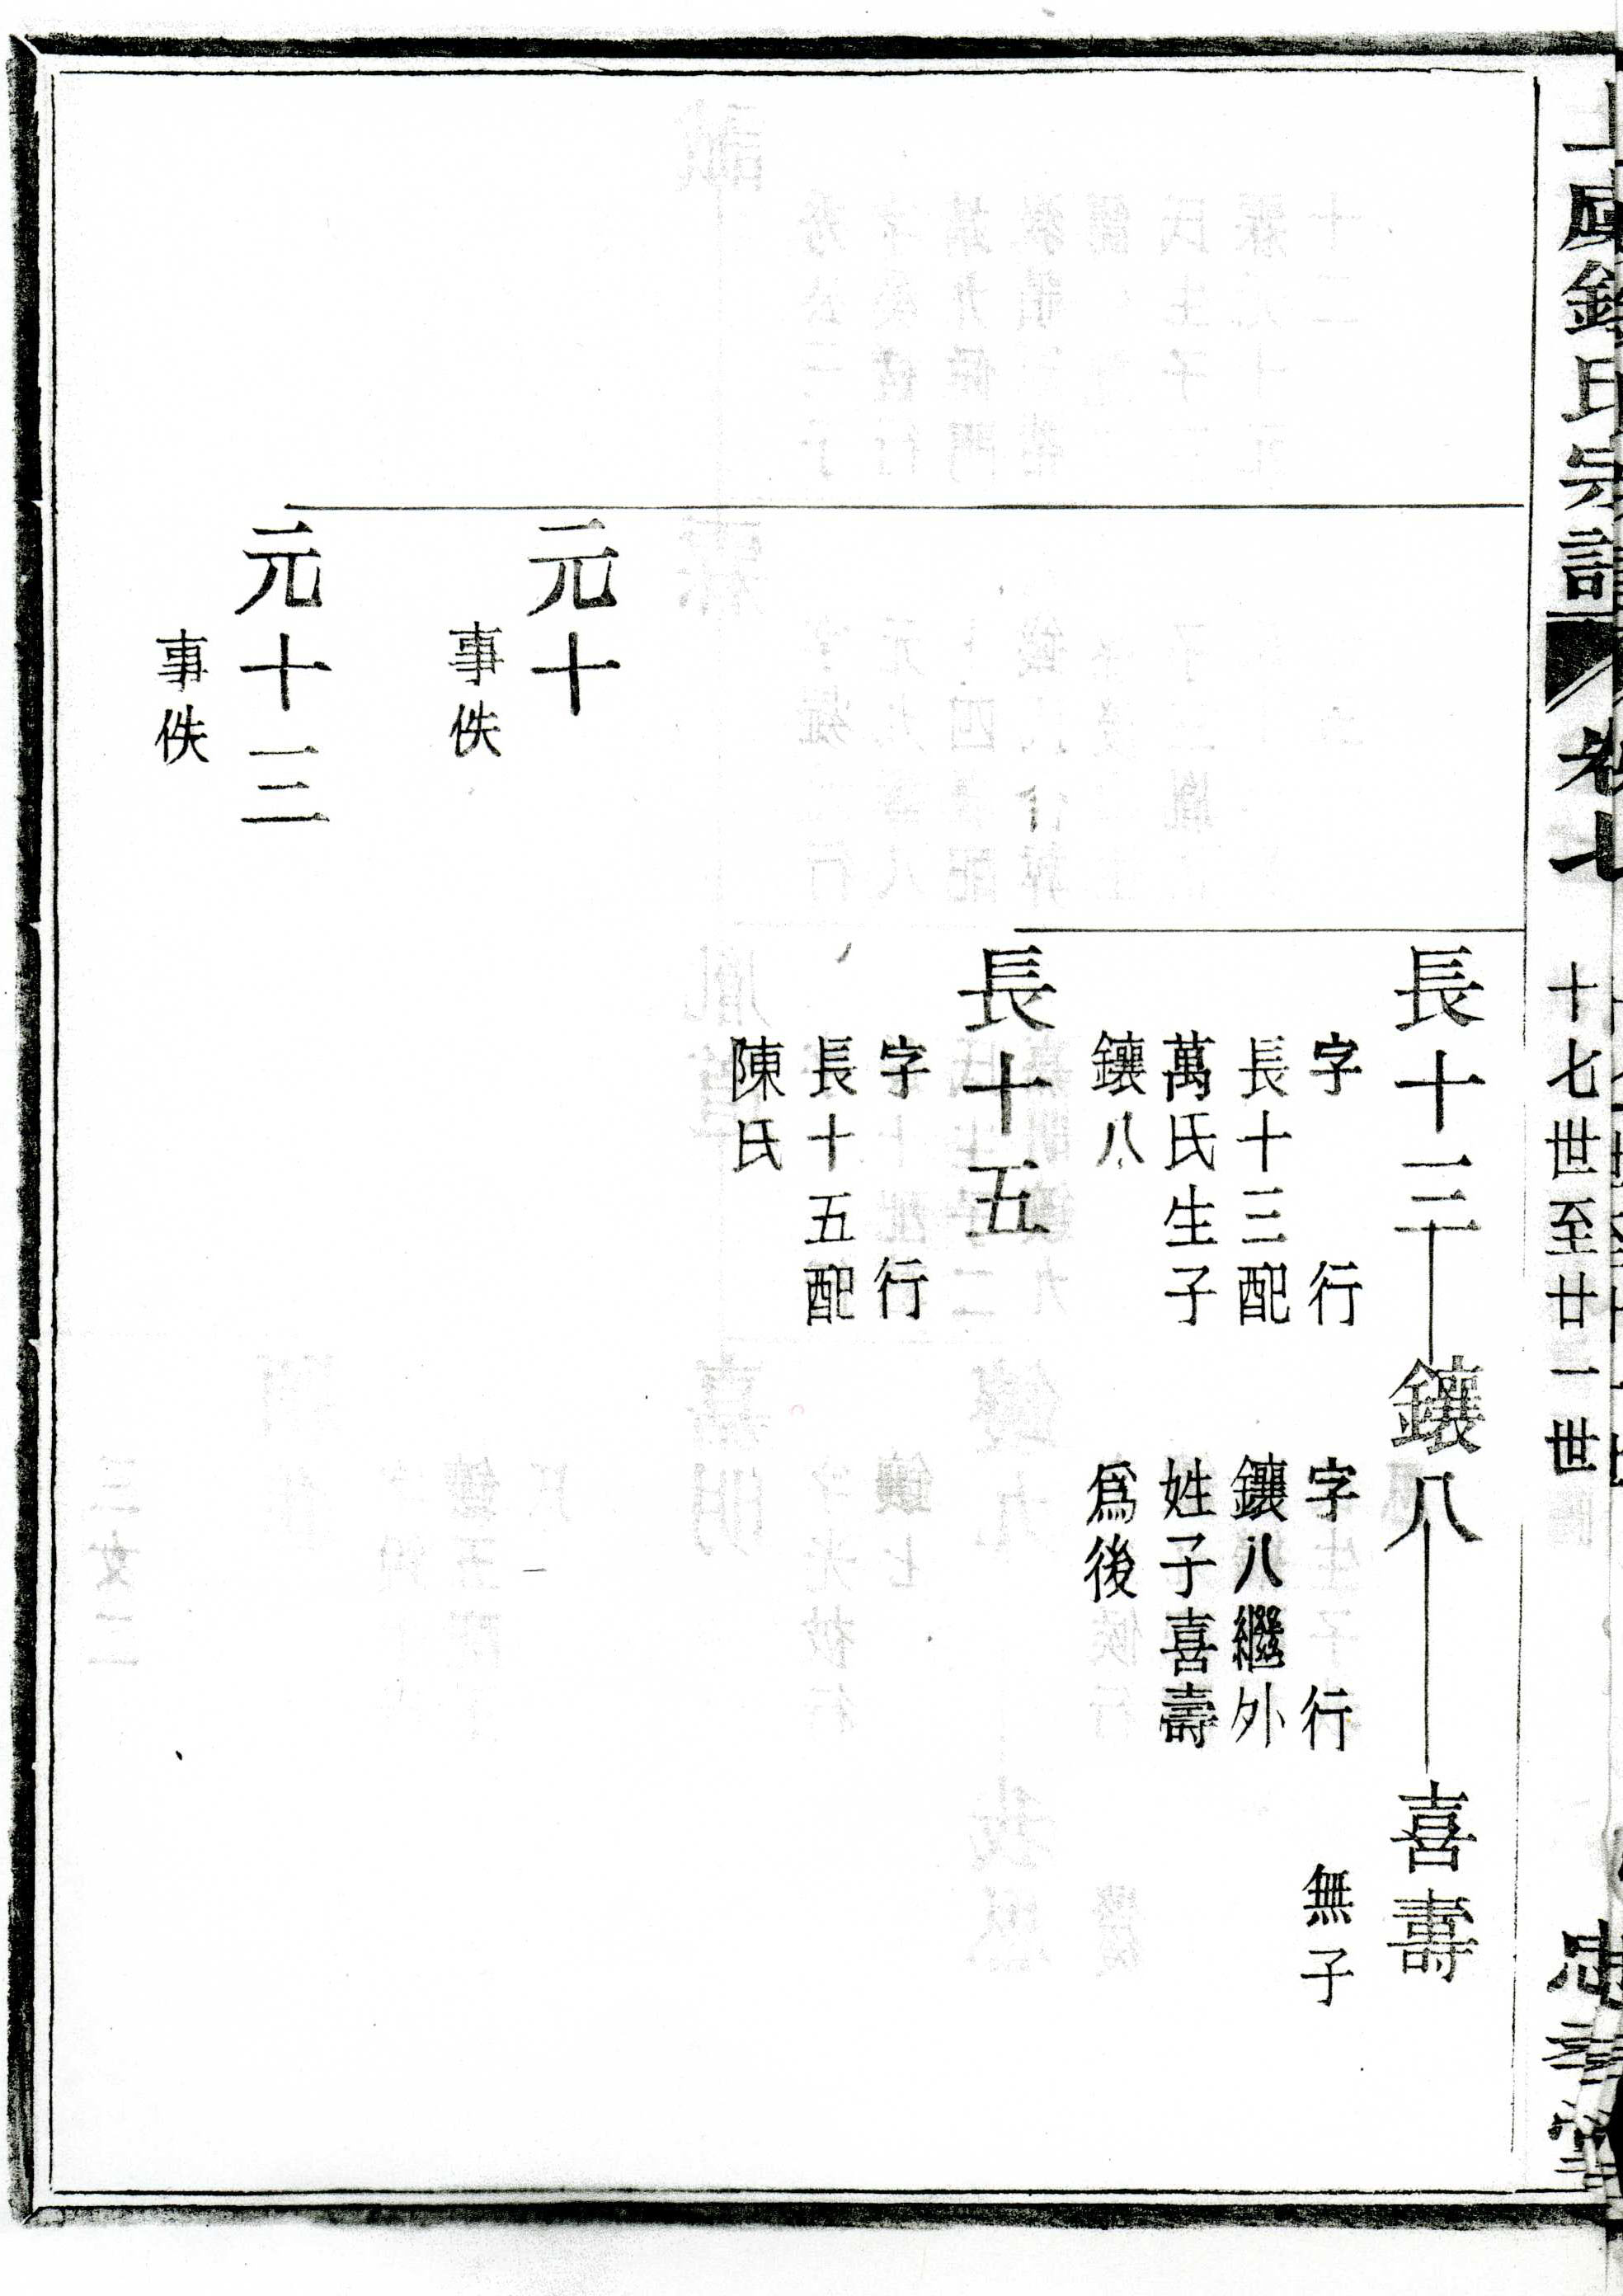 氏宗譜
卷七
十七世至廿一世
長十三
字 行
長十三配
萬氏生子
鑲八
鑲八
字 行
鑲八繼外
姓子喜壽
爲後
喜壽
無子
長十五
字 行
長十五配
陳氏
元十
事佚
元十三
事佚